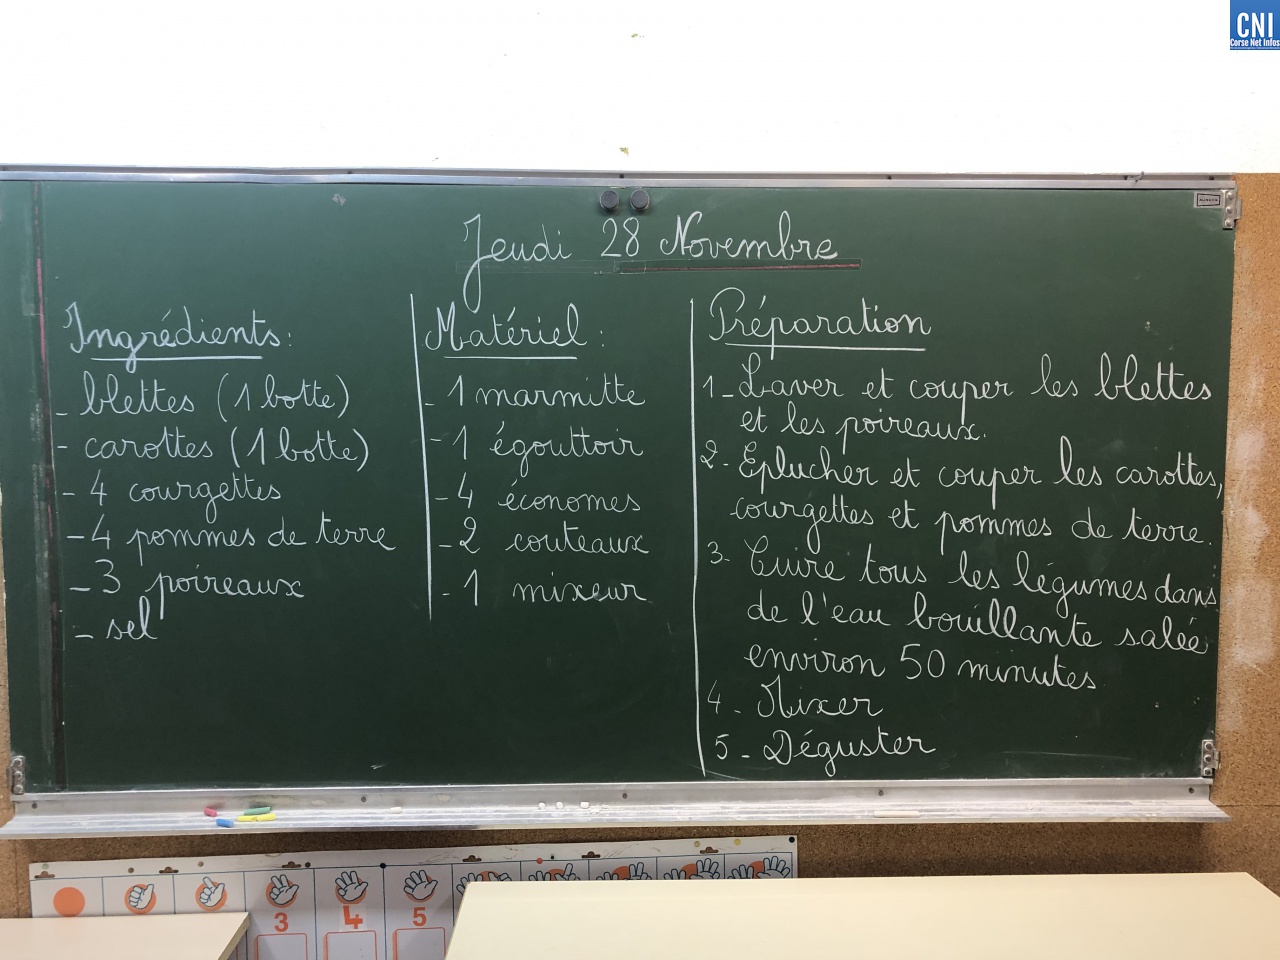 CNI
Corse Net Infos
Jeudi 28 Novembre
Ingrédients :
- blettes (1 botte)
- carottes (1 botte)
- 4 courgettes
- 4 pommes de terre
- 3 poireaux
- sel
Matériel :
- 1 marmitte
- 1 égouttoir
- 4 économes
- 2 couteaux
- 1 mixeur
Préparation
1 - Laver et couper les blettes
et les poireaux.
2 - Eplucher et couper les carottes,
courgettes et pommes de terre.
3 - Cuire tous les légumes dans
de l'eau bouillante salée
environ 50 minutes
4 - Mixer
5 - Déguster
3
4
5